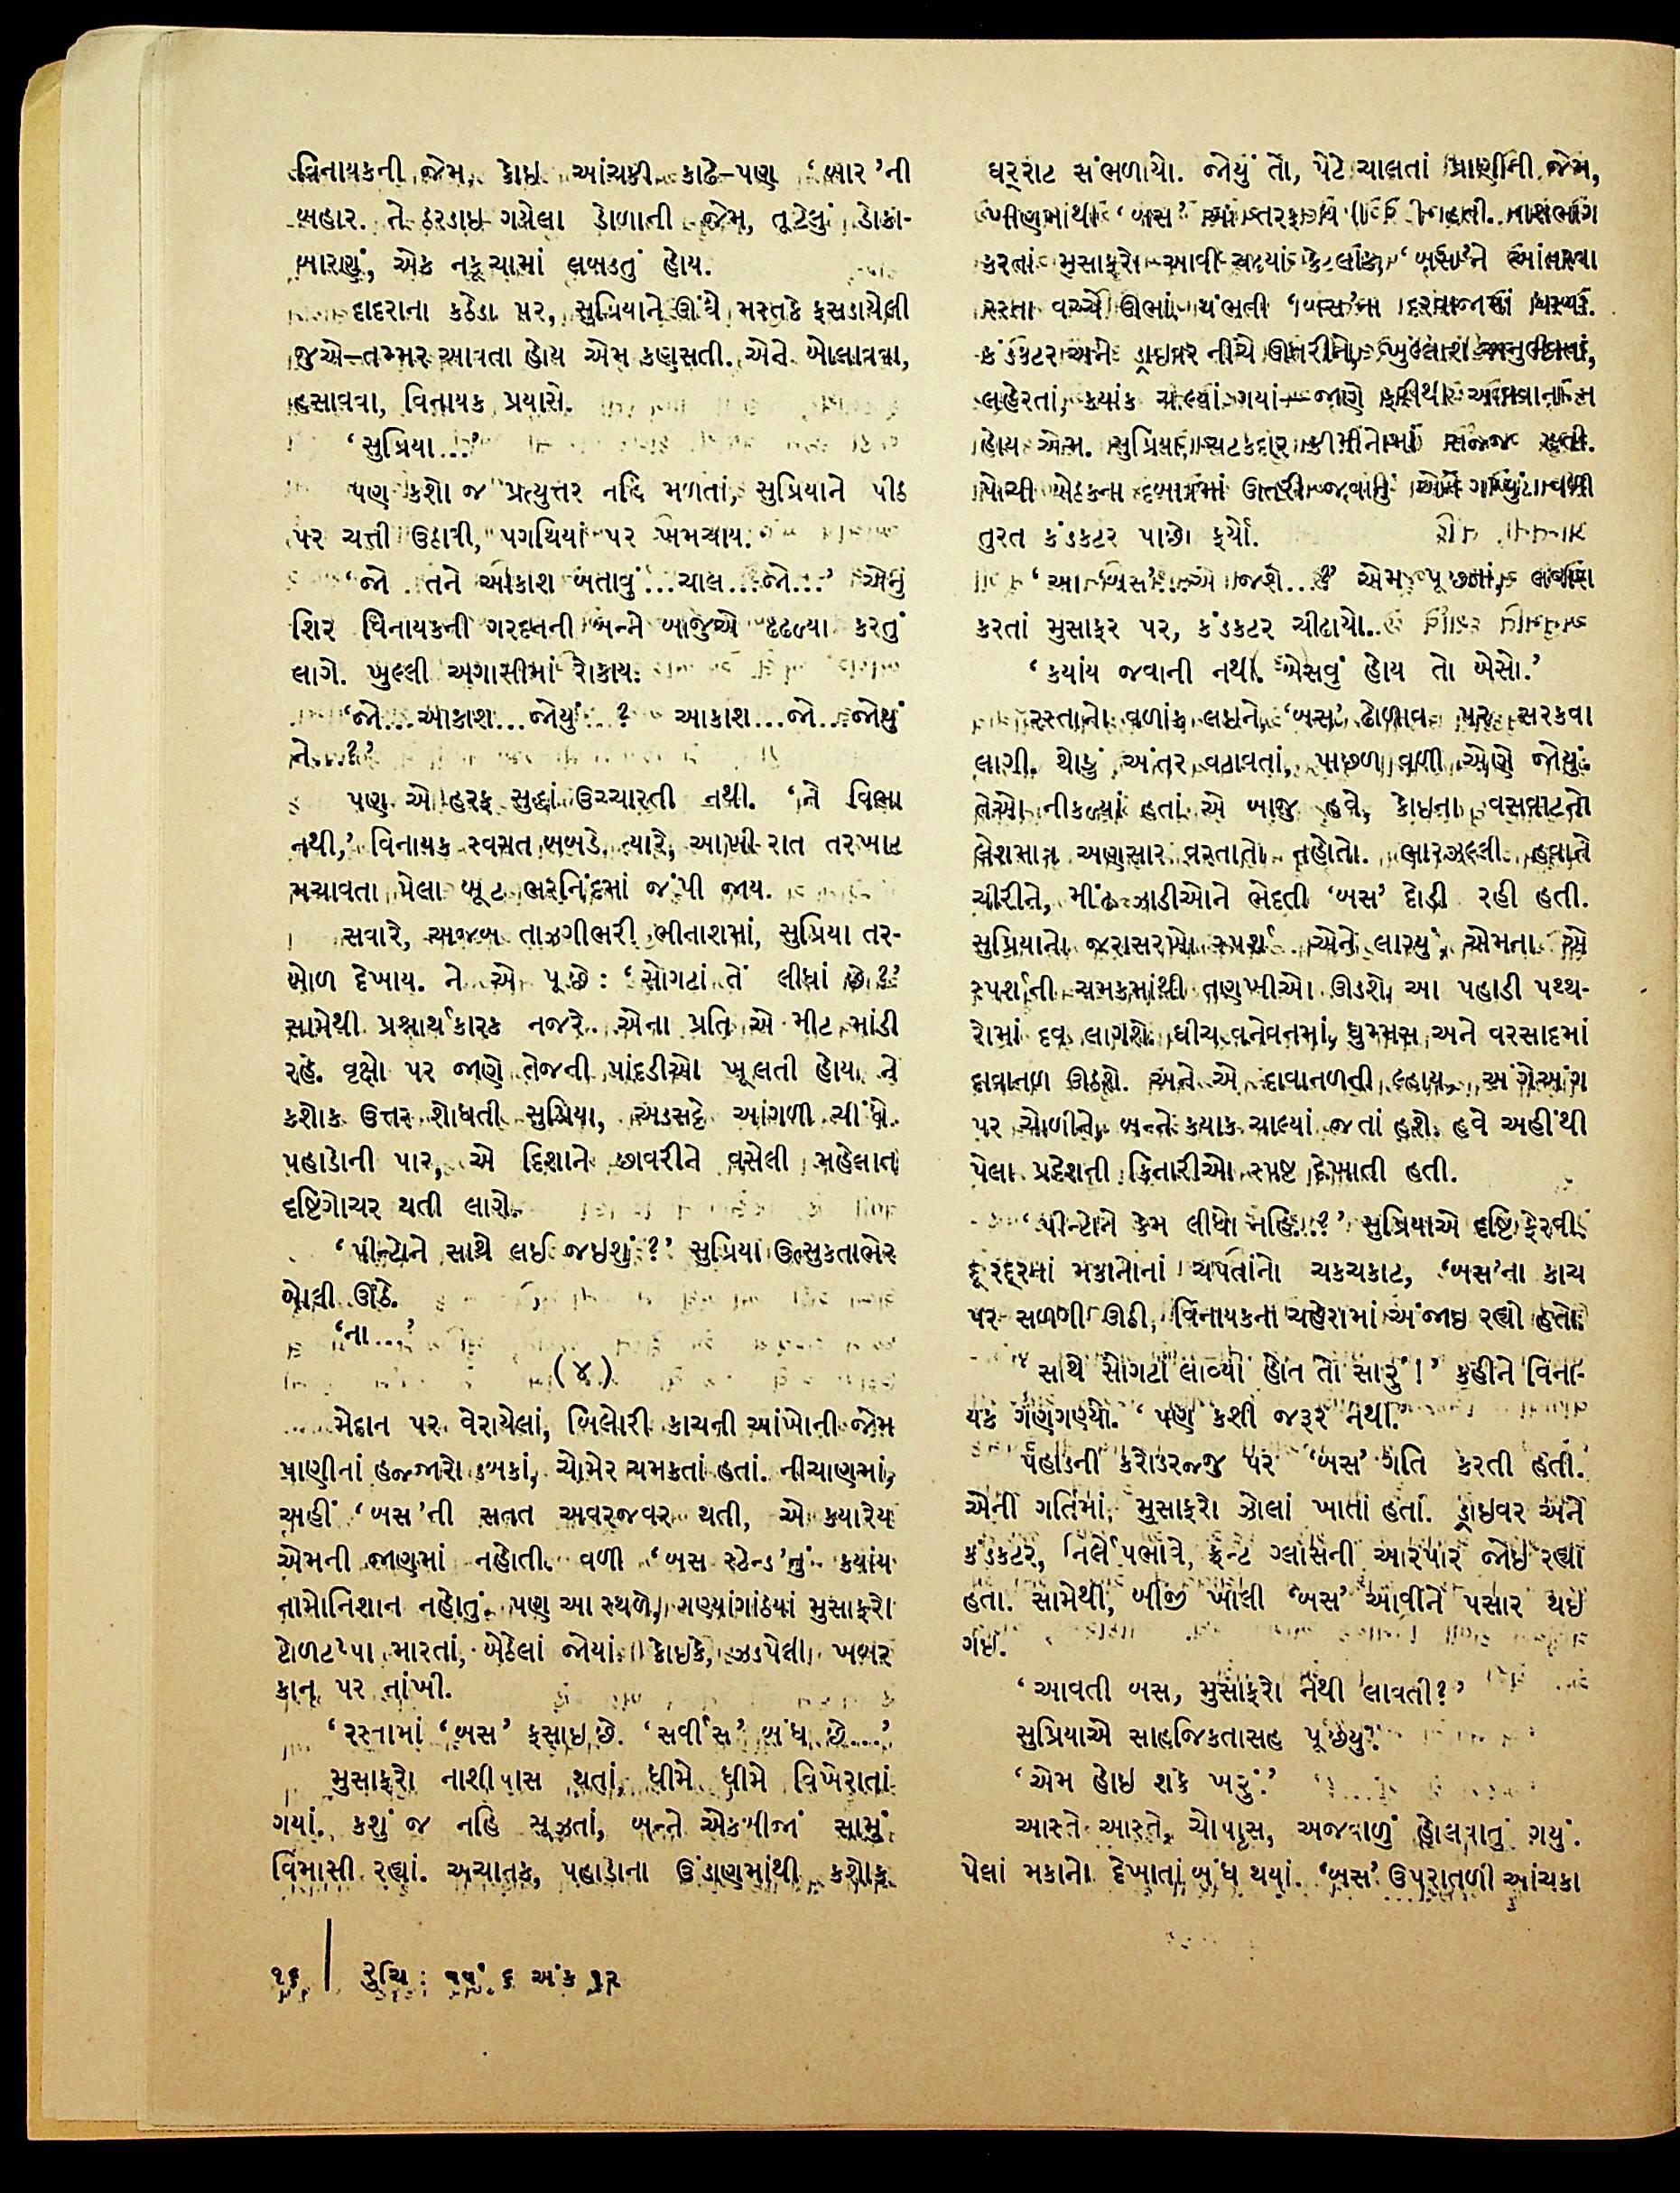 વિનાયકની જેમ, કોઇ આંચકી કાઢે–પણ ‘બાર’ની
બહાર. ને ઠરડાઇ ગયેલા ડોળાની જેમ, તૂટેલું ડોકા-
બારણું, એક નકૂચામાં લબડતું હોય.
દાદરાના કઠેડા પર, સુપ્રિયાને ઊંધે મસ્તકે ફસડાયેલી
જુએ–તમ્મર આવતા હોય એમ કણસતી. એને બોલાવવા,
હસાવવા, વિનાયક પ્રયાસે.
‘સુપ્રિયા...’
પણ કશો જ પ્રત્યુત્તર નહિ મળતાં, સુપ્રિયાને પીઠ
પર ચત્તી ઉઠાવી, પગથિયાં પર ખમચાય.
‘જો તને આકાશ બતાવું...ચાલ...જો...’ એનું
શિર વિનાયકની ગરદનની બન્ને બાજુએ ઢઢળ્યા કરતું
લાગે. ખુલ્લી અગાસીમાં રોકાય:
‘જો...આકાશ...જોયું...? આકાશ...જો...જોયું
ને...?’
પણ એ હરફ સુદ્ધાં ઉચ્ચારતી નથી. ‘ને વિભા
નથી,’ વિનાયક સ્વગત બબડે ત્યારે, આખી રાત તરખાટ
મચાવતા પેલા બૂટ ભરનિંદમાં જંપી જાય.
સવારે, અજબ તાઝગીભરી ભીનાશમાં, સુપ્રિયા તર-
બોળ દેખાય. ને એ પૂછે: ‘સોગટાં તેં લીધાં છે?’
સામેથી પ્રશ્નાર્થકારક નજરે એના પ્રતિ એ મીટ માંડી
રહે. વૃક્ષો પર જાણે તેજની પાંદડીઓ ખૂલતી હોય ને
કશોક ઉત્તર શોધતી સુપ્રિયા, અડસટ્ટે આંગળી ચીંધે.
પહાડોની પાર, એ દિશાને છાવરીને વસેલી મહેલાત
દૃષ્ટિગોચર થતી લાગે.
‘પીન્ટોને સાથે લઈ જઇશું?’ સુપ્રિયા ઉત્સુકતાભેર
બોલી ઊઠે.
‘ના...’
(૪)
મેદાન પર વેરાયેલાં, બિલોરી કાચની આંખોની જેમ
પાણીનાં હજ્જારો ડબકાં, ચોમેર ચમકતાં હતાં. નીચાણમાં,
અહીં ‘બસ’ની સતત અવરજવર થતી, એ ક્યારેય
એમની જાણમાં નહોતી. વળી ‘બસ સ્ટેન્ડ’નું કયાંય
નામોનિશાન નહોતું. પણ આ સ્થળે, ગણ્યાંગાંઠયાં મુસાફરો
ટોળટપ્પા મારતાં, બેઠેલાં જોયાં. કોઇકે, ઝડપેલી ખબર
કાન પર નાંખી.
‘રસ્તામાં ‘બસ’ ફસાઇ છે. ‘સર્વીસ’ બંધ છે...’
મુસાફરો નાશીપાસ થતાં ધીમે ધીમે વિખેરાતાં
ગયાં. કશું જ નહિ સૂઝતાં, બન્ને એકબીજાં સામું
વિમાસી રહ્યાં. અચાનક, પહાડોના ઉંડાણમાંથી કશોક
ઘર્‌રાટ સંભળાયો. જોયું તો, પેટે ચાલતાં પ્રાણીની જેમ,
ખીણમાંથી ‘બસ’ આ તરફ
કરતાં મુસાફરો આવી ચઢયાં. કેટલાંક ‘બસ’ને આંતરવા
રસ્તા વચ્ચે ઊભાં. થંભતી ‘બસ’ના દરવાજામાં
કંડકટર અને ડ્રાઇવર નીચે ઊતરીને,
લહેરતાં, કયાંક ચાલ્યાં ગયાં—જાણે ફરીથી
હોય એમ. સુપ્રિયા, ચટકદાર
પોચી બેઠકના દબાવમાં ઊતરી જવાનું એને ગમ્યું.
તુરત કંડકટર પાછો ફર્યો.
‘આ ‘બસ’...એ જશે...?’ એમ પૂછતાં,
કરતાં મુસાફર પર, કંડકટર ચીઢાયો.
‘કયાંય જવાની નથી. બેસવું હોય તો બેસો.’
રસ્તાનો વળાંક લઇને, ‘બસ’ ઢોળાવ પર સરકવા
લાગી. થોડું અંતર વટાવતાં, પાછળ વળી એણે જોયું:
તેઓ નીકળ્યાં હતાં એ બાજુ હવે, કોઇના વસવાટનો
લેશમાત્ર અણસાર વરતાતો નહોતો. ભારઝલ્લી હવાને
ચીરીને, મીંઢ ઝાડીઓને ભેદતી ‘બસ’ દોડી રહી હતી.
સુપ્રિયાનો જરાસરખો સ્પર્શ એને લાગ્યું, એમના એ
સ્પર્શની ચમકમાંથી તણખીઓ ઊડશે, આ પહાડી પથ્થ-
રોમાં દવ લાગશે. ઘીચ વનેવનમાં, ધુમ્મસ અને વરસાદમાં
દાવાનળ ઊઠશે. અને એ દાવાનળની લ્હાય, અંગેઅંગ
પર ચોળીને, બન્ને કયાક ચાલ્યાં જતાં હશે. હવે અહીંથી
પેલા પ્રદેશની કિનારીઓ સ્પષ્ટ દેખાતી હતી.
‘પીન્ટોને કેમ લીધો નહિ...?’ સુપ્રિયાએ દૃષ્ટિ ફેરવી.
દૂરદૂરનાં મકાનોનાં ચર્પતાંનો ચકચકાટ, ‘બસ’ના કાચ
પર સળગી ઊઠી, વિનાયકના ચહેરામાં અંજાઇ રહ્યો હતો.
‘સાથે સોગટાં લાવ્યો હોત તો સારું!’ કહીને વિના-
યક ગણગણ્યો. ‘પણ કશી જરૂર નથી.’
પહાડની કરોડરજ્જુ પર ‘બસ’ ગતિ કરતી હતી.
એની ગતિમાં, મુસાફરો ઝોલાં ખાતાં હતાં. ડ્રાઇવર અને
કંડકટર, નિર્લેપભાવે, ફ્રન્ટ ગ્લાસની આરપાર જોઇ રહ્યા
હતા. સામેથી, બીજી ખાલી ‘બસ’ આવીને પસાર થઇ
ગઇ.
‘આવતી બસ, મુસાફરો નથી લાવતી?’
સુપ્રિયાએ સાહજિકતાસહ પૂછયું.
‘એમ હોઇ શકે ખરું.’
આસ્તે આસ્તે, ચોપાસ, અજવાળું હોલવાતું ગયું.
પેલાં મકાનો દેખાતાં બંધ થયાં. ‘બસ’ ઉપરાતળી આંચકા
૧૬ | રુચિ : વર્ષ ૬ અંક ૧૨